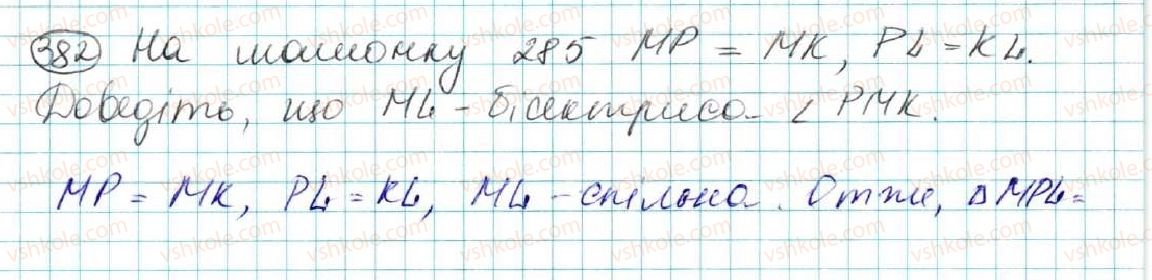 382 На малюнку 285 MP = MK, PL = KL.
Доведіть, що ML - бісектриса ∠ PMK.
MP = MK, PL = KL, ML - спільна. Отже, Δ MPL =